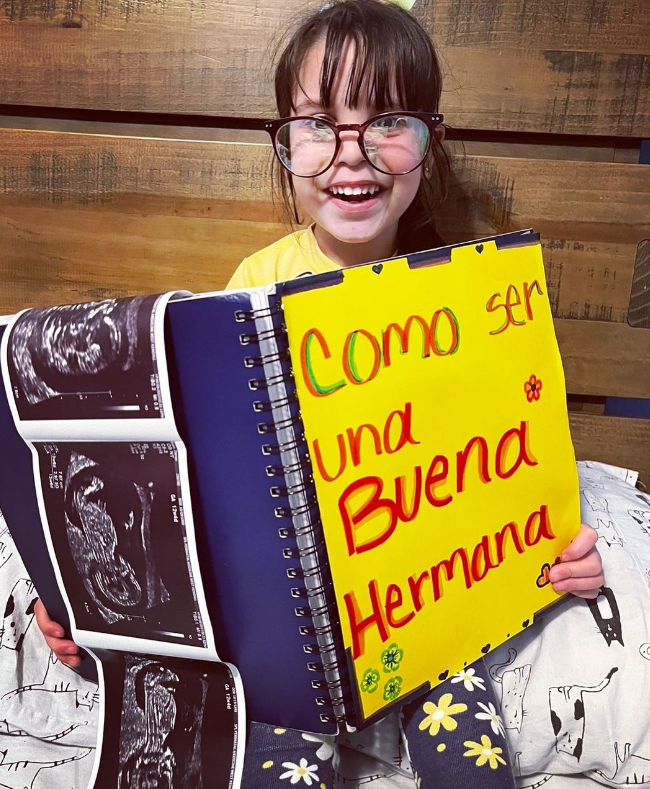 Como ser
una
Buena
Hermana